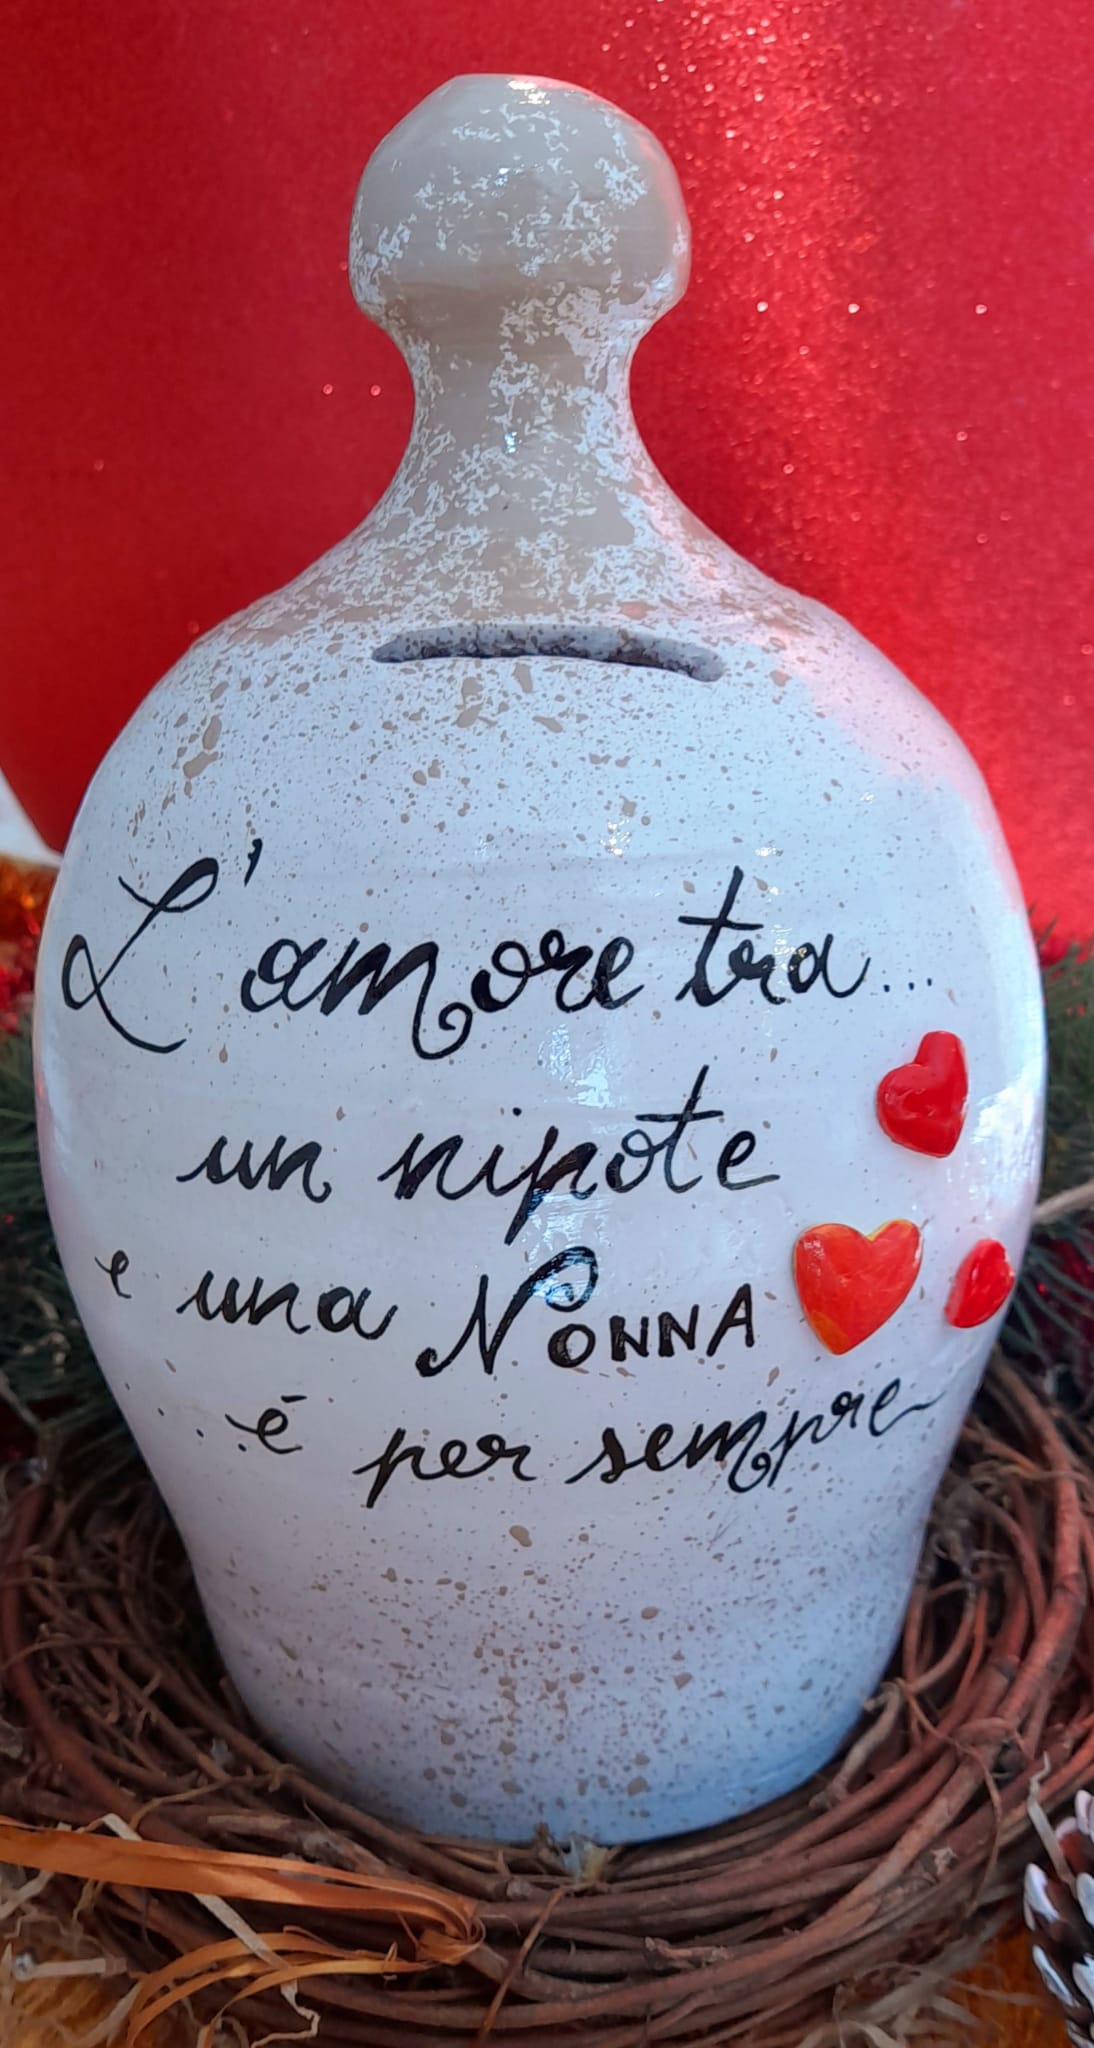 L'amore tra...
un nipote
e una NONNA
...è per sempre